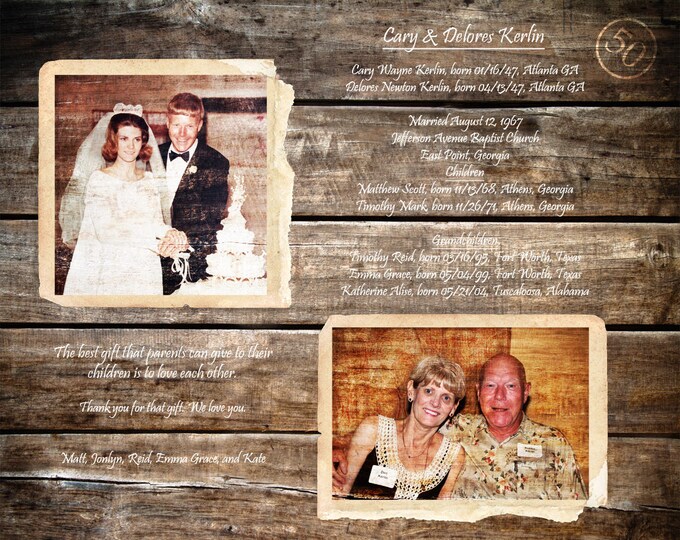 Cary & Delores Kerlin
50
Cary Wayne Kerlin, born 01/16/47, Atlanta GA
Delores Newton Kerlin, born 04/13/47, Atlanta GA
Married August 12, 1967
Jefferson Avenue Baptist Church
East Point, Georgia
Children
Matthew Scott, born 11/13/68, Athens, Georgia
Timothy Mark, born 11/26/71, Athens, Georgia
Grandchildren
Timothy Reid, born 03/16/95, Fort Worth, Texas
Emma Grace, born 05/04/99, Fort Worth, Texas
Katherine Alise, born 05/21/04, Tuscaloosa, Alabama
The best gift that parents can give to their
children is to love each other.
Thank you for that gift. We love you.
Matt, Jonlyn, Reid, Emma Grace, and Kate